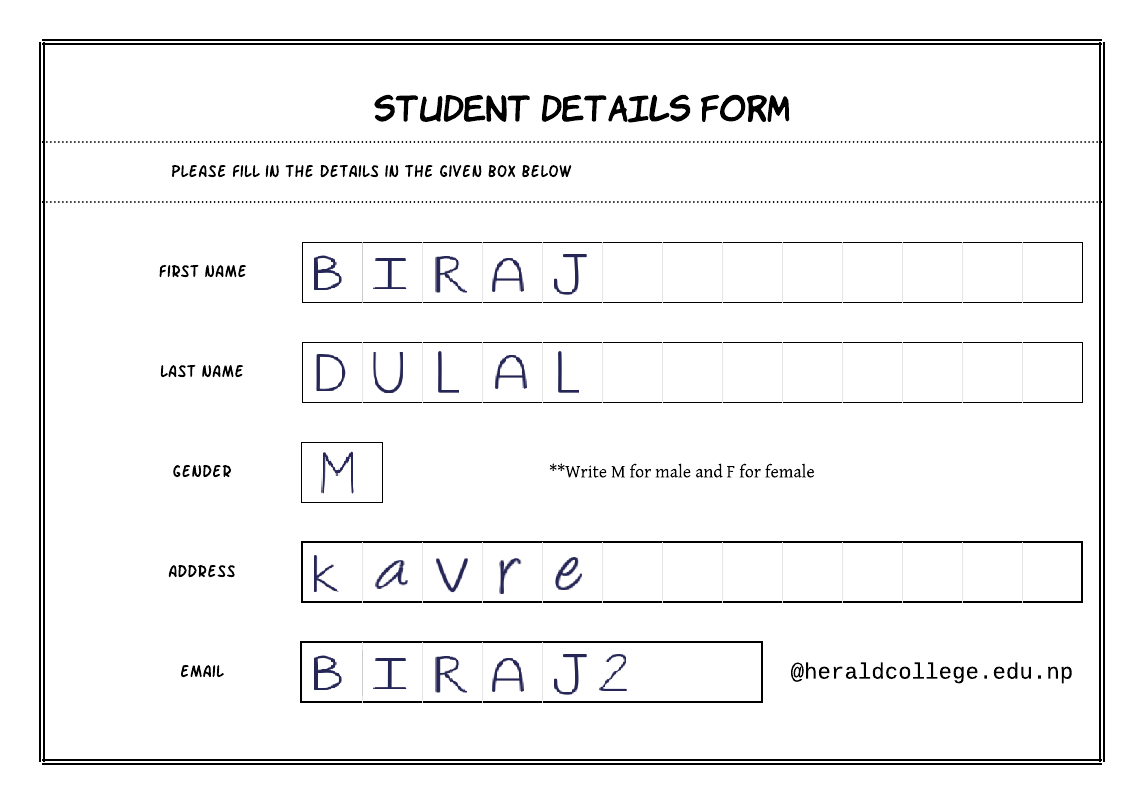 STUDENT DETAILS FORM
PLEASE FILL IN THE DETAILS IN THE GIVEN BOX BELOW
FIRST NAME BIRAJ
LAST NAME DULAL
GENDER M **Write M for male and F for female
ADDRESS kavre
EMAIL BIRAJ2 @heraldcollege.edu.np